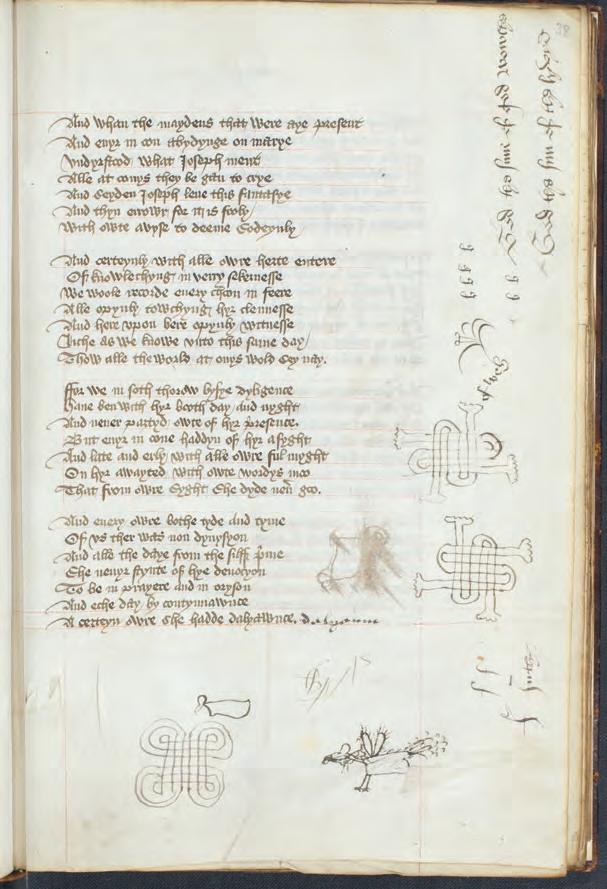 38
And whan the maydens that were aye present
And euyr in oon abydynge on marye
Vndyrstood what Joseph ment
Alle at onys they be gan to crye
And seyden Joseph leue this fantasye
And thyn errowr for it is foly
With owte avyse to deeme sodeynly

And certeynly with alle owre herte entere
Of knowlechyng in verry sekernesse
We woole recorde euery chon in feere
Alle opynly towchyng hyr clennesse
And here vpon bere opynly witnesse
Liche as we knowe vnto this same day
Thow alle the world at onys wold sey nay.

ffor we in soth thorow bysye dyligence
Haue ben with hyr booth day and nyght
And neuer partyd owte of hyr presence.
But euyr in oone haddyn of hyr a syght
And late and erly with alle owre ful myght
On hyr awayted with owte wordys moo
That from owre syght she dyde neuer goo.

And euery owre bothe tyde and tyme
Of vs ther was non dyuysyon
And alle the daye from the silff pme
She neuyr stynte of hye deuocyon
To be in prayere and in oryson
And eche day by contynuawnce
A certeyn owre she hadde dalyawnce.